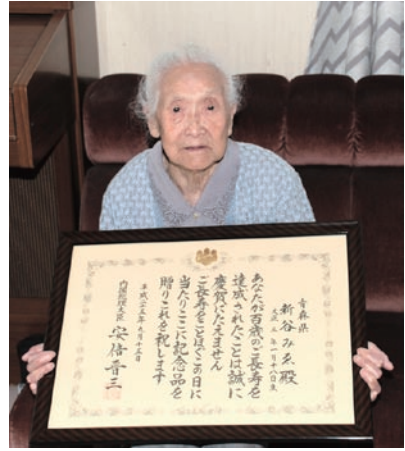 青森県
新谷みゑ殿
大正 年一月十八日生
あなたが百歳のご長寿を
達成されたことは誠に
慶賀にたえません
ご長寿をことほぐこの日に
当たりここに記念品を
贈りこれを祝します
平成二十五年九月十五日
内閣総理大臣 安倍晋三